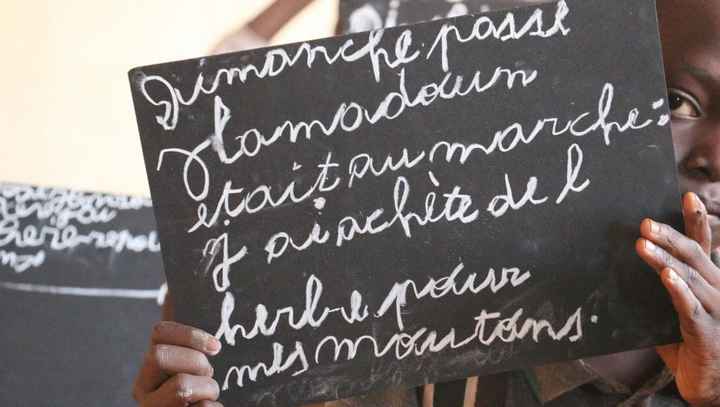 Dimanche passé
Hamadoun
était au marché:
J ai achète de l
herbe pour
mes moutons.